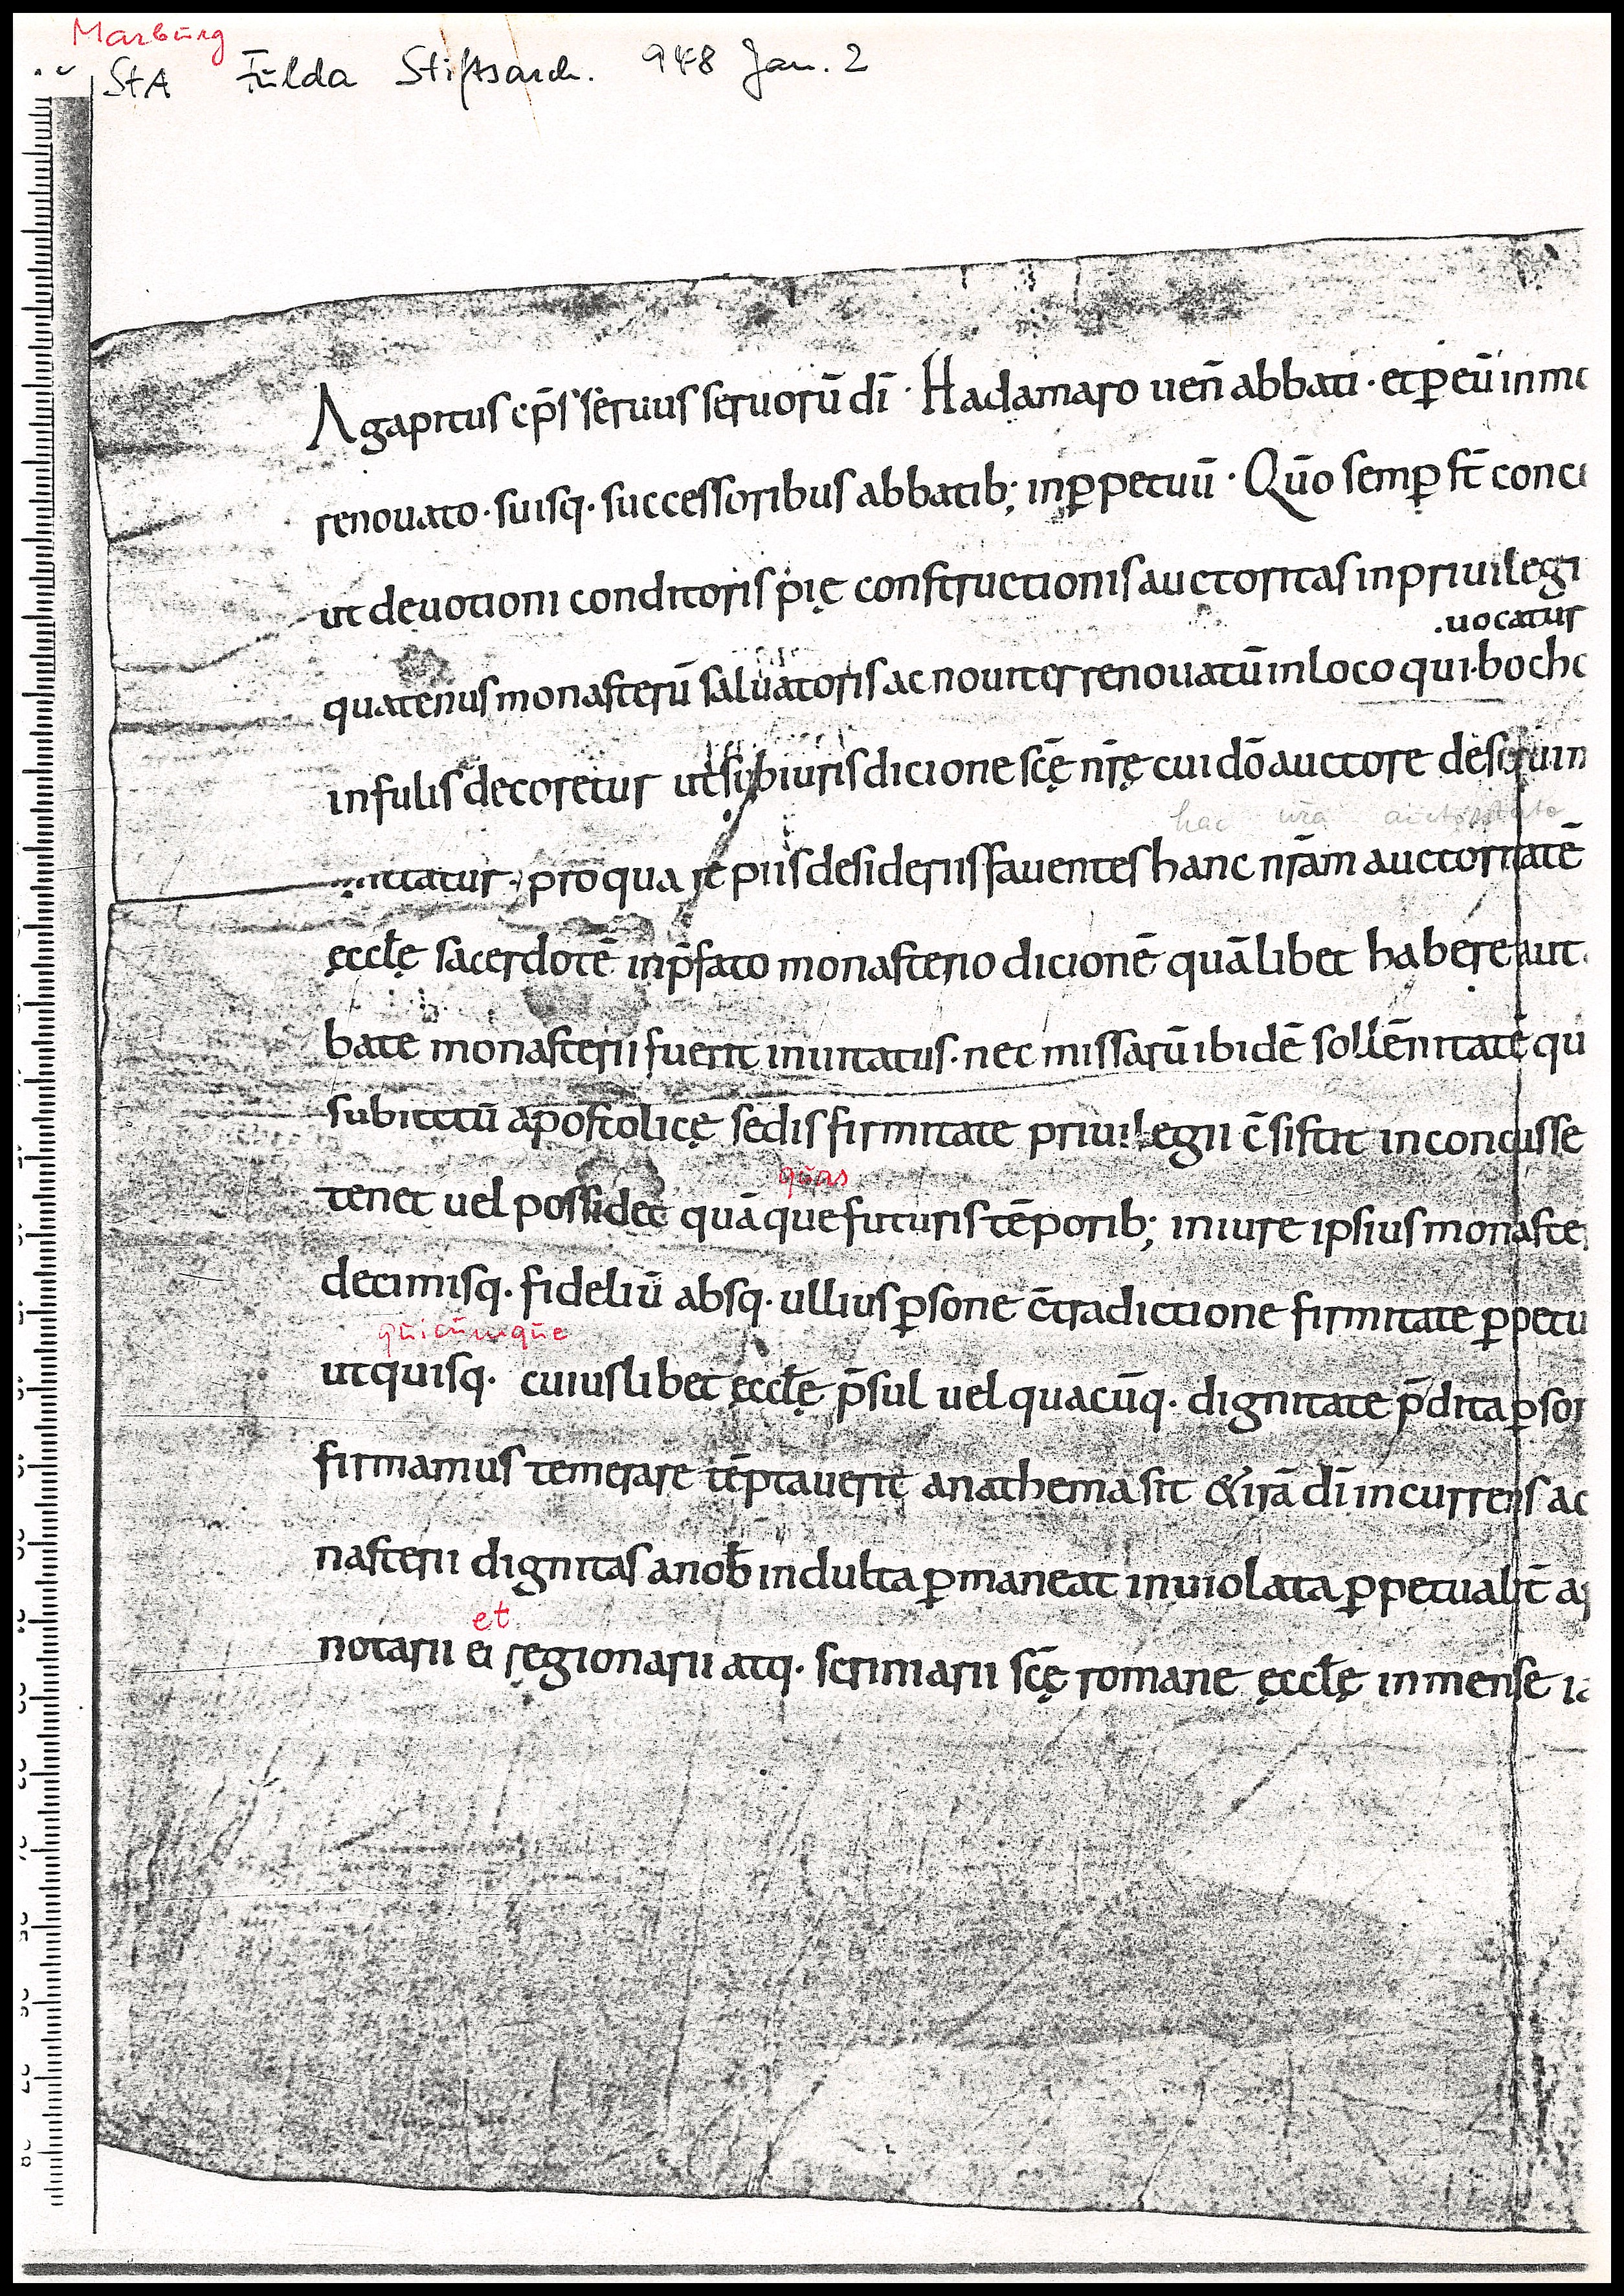 Marburg
StA Fulda Stiftsarch. 948 Jan. 2
Agapitus ep̄s seruus seruorū dī · Hadamaro ueñ abbati · et ꝑ eū in mo
renouato · suisq· successoribus abbatib; inꝑpetuū · Qūo semꝑ st̄ conce
ut deuotioni conditoris pię constructionis auctoritas in priuilegi
.uocatur
quatenus monasteriū saluatoris ac nouiter renouatū in loco qui · bocho
infulis decoretur ut sub iuris dicione scę̄ nr̄ę cui dō auctore deseruim
hac nr̄a auctoritate
mittatur · pro qua re piis desideriis fauentes hanc nr̄am auctoritatē
ęccłę sacerdotē in p̄fato monasterio dicionē quālibet habere aut
bate monasterii fuerit inuitatus · nec missarū ibidē sollēnitatē qu
subiectū apostolicę sedis firmitate priuilegii c̄sistat inconcusse
quas
tenet uel possidet quā que futuris tēporib; in iure ipsius monaste
decimisq· fideliū absq· ullius ꝑsone c̄tradictione firmitate ꝑpetu
quicumque
ut quisq· cuiuslibet ęccłę p̄sul uel quacūq· dignitate p̄dita ꝑson
firmamus temerare tēptauerit anathema sit & irā dī incurrens ac
nasterii dignitas a nob̄ indulta ꝑmaneat inuiolata ꝑpetualit̄ ap
et
notarii ei regionarii atq· scriniarii scę̄ romane ęccłę in mense ia